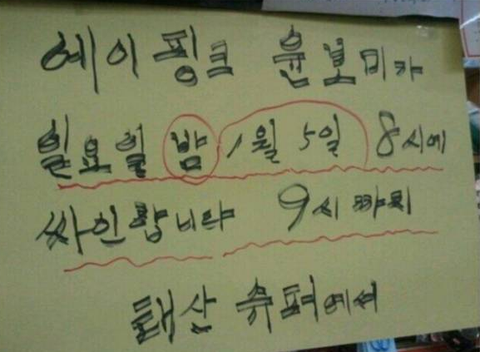 에이핑크 윤보미가
일요일 밤 1월 5일 8시에
싸인합니다 9시까지
태산 슈퍼에서